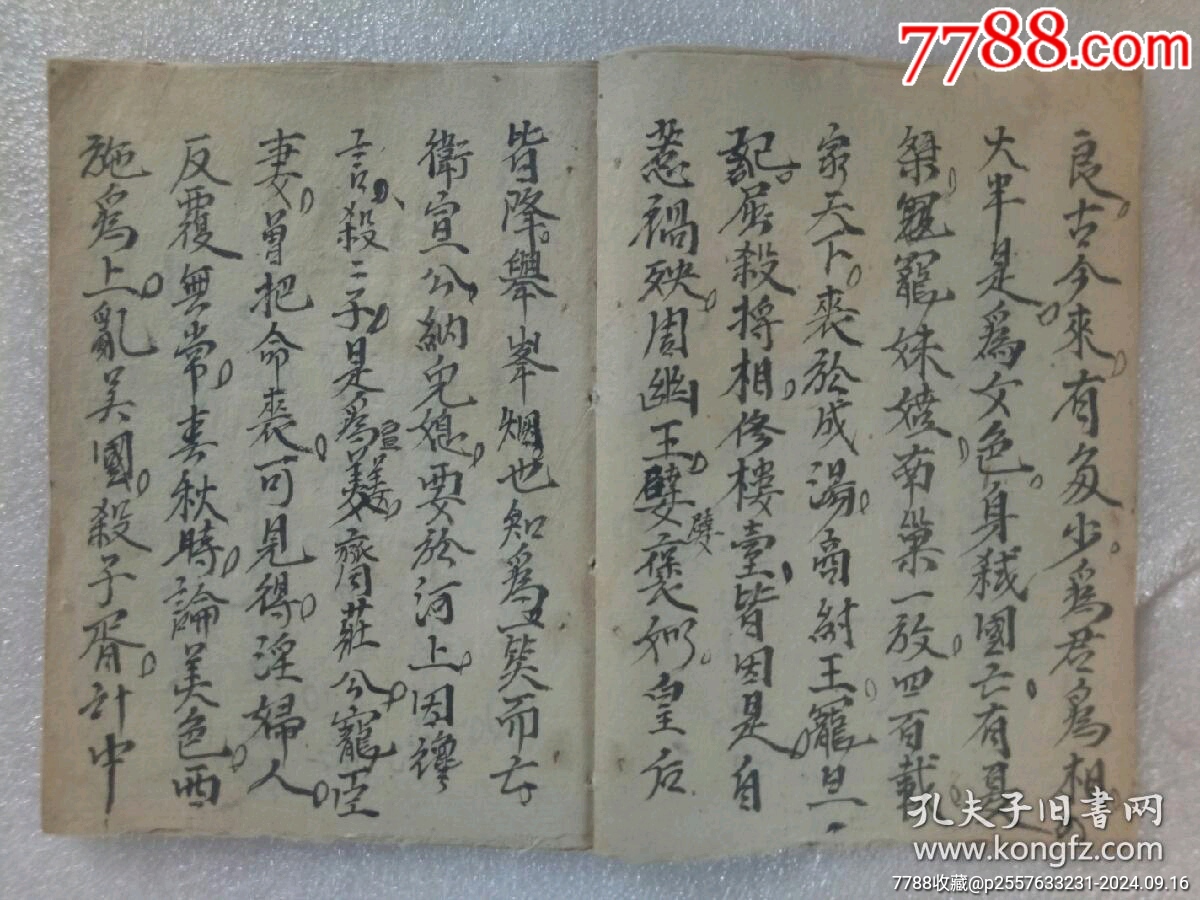 7788.com
良古今來有多少為君為相
大半是為女色身弒國亡有夏
桀寵妹嬉南巢一放四百載
家天下喪於成湯商紂王寵旦
記屈殺將相修樓臺皆因是自
惹禍殃周幽王嬖褒姒皇后
嬖
皆降舉峯烟也知為一笑而亡
衛宣公納兒媳要於河上因讒
言殺二子是為宣姜齊莊公寵臣
妻曾把命喪可見得淫婦人
反覆無常春秋時論美色西
施為上亂吳國殺子胥計中
孔夫子旧書网
www.kongfz.com
7788收藏@p2557633231-2024.09.16